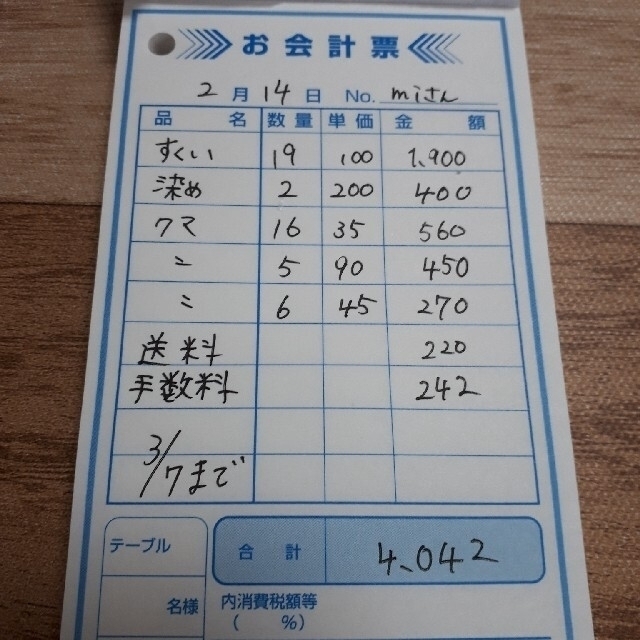 お会計票
2月14日 No. miさん
品名 数量 単価 金額
すくい 19 100 1,900
染め 2 200 400
クマ 16 35 560
〃 5 90 450
〃 6 45 270
送料 220
手数料 242
3/7まで
テーブル 合計 4,042
名様 内消費税額等
( %)